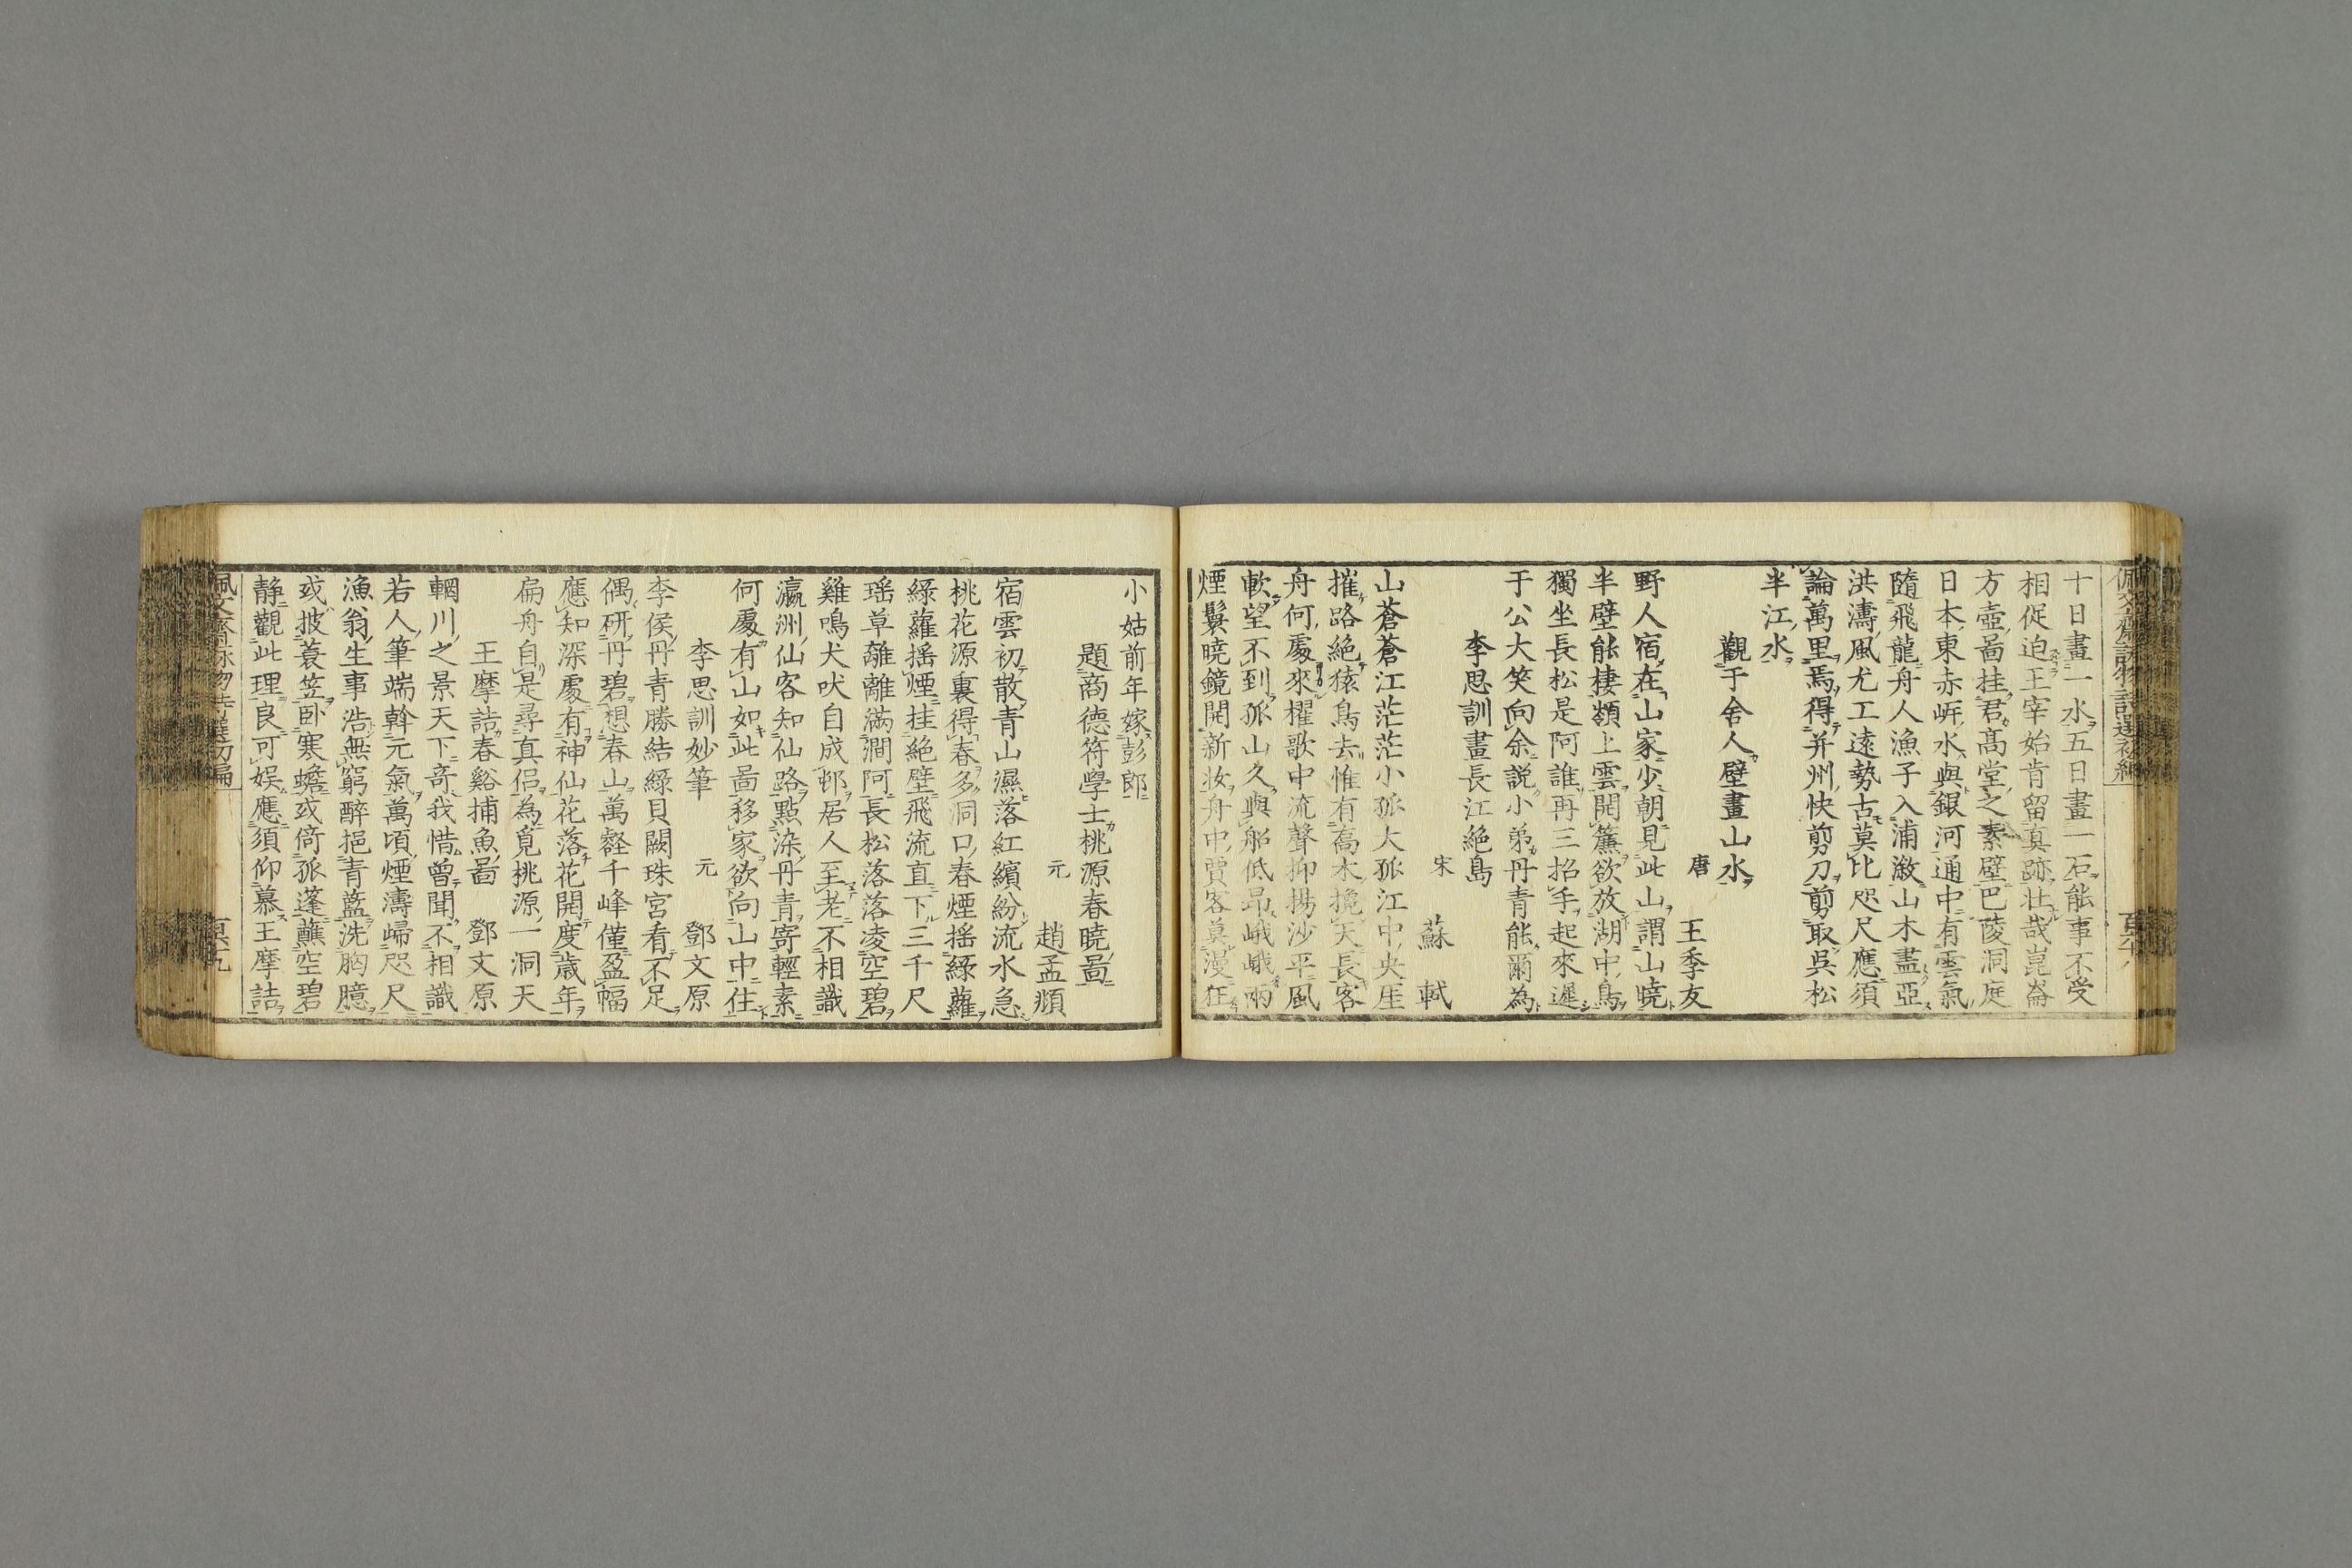 十日畫一水五日畫一石能事不受
相促迫王宰始肯留真跡壯哉崑崙
方壺啚挂君高堂之素壁巴陵洞庭
日本東赤岍水與銀河通中有雲氣
隨飛龍舟人漁子入浦溆山木盡亞
洪濤風尤工遠勢古莫比咫尺應須
論萬里焉得并州快剪刀剪取吳松
半江水
觀于舍人壁畫山水
唐 王季友
野人宿在山家少朝見此山謂山曉
半壁能棲嶺上雲開簾欲放湖中鳥
獨坐長松是阿誰再三招手起來遲
于公大笑向余説小弟丹青能爾為
李思訓畫長江絕島
宋 蘇軾
山蒼蒼江茫茫小孤大孤江中央崖
摧路絕猿鳥去惟有喬木攙天長客
舟何處來櫂歌中流聲抑揚沙平風
軟望不到孤山久與船低昂峨峨兩
煙鬟曉鏡開新妝舟中賈客莫漫狂
小姑前年嫁彭郎
題商德符學士桃源春曉啚
元 趙孟頫
宿雲初散青山濕落紅繽紛流水急
桃花源裏得春多洞口春煙揺綠蘿
綠蘿揺煙挂絕壁飛流直下三千尺
瑶草離離滿澗阿長松落落凌空碧
雞鳴犬吠自成邨居人至老不相識
瀛洲仙客知仙路點染丹青寄輕素
何處有山如此啚移家欲向山中住
李思訓妙筆
元 鄧文原
李侯丹青勝結綠貝闕珠宮看不足
偶研丹碧想春山萬壑千峰僅盈幅
應知深處有神仙花落花開度歳年
扁舟自是尋真侣為覓桃源一洞天
王摩詰春谿捕魚啚 鄧文原
輞川之景天下竒我惜曾聞不相識
若人筆端斡元氣萬頃煙濤歸咫尺
漁翁生事浩無窮醉挹青藍洗胸臆
或披蓑笠卧寒蟾或倚孤蓬蘸空碧
静觀此理良可娱應須仰慕王摩詰